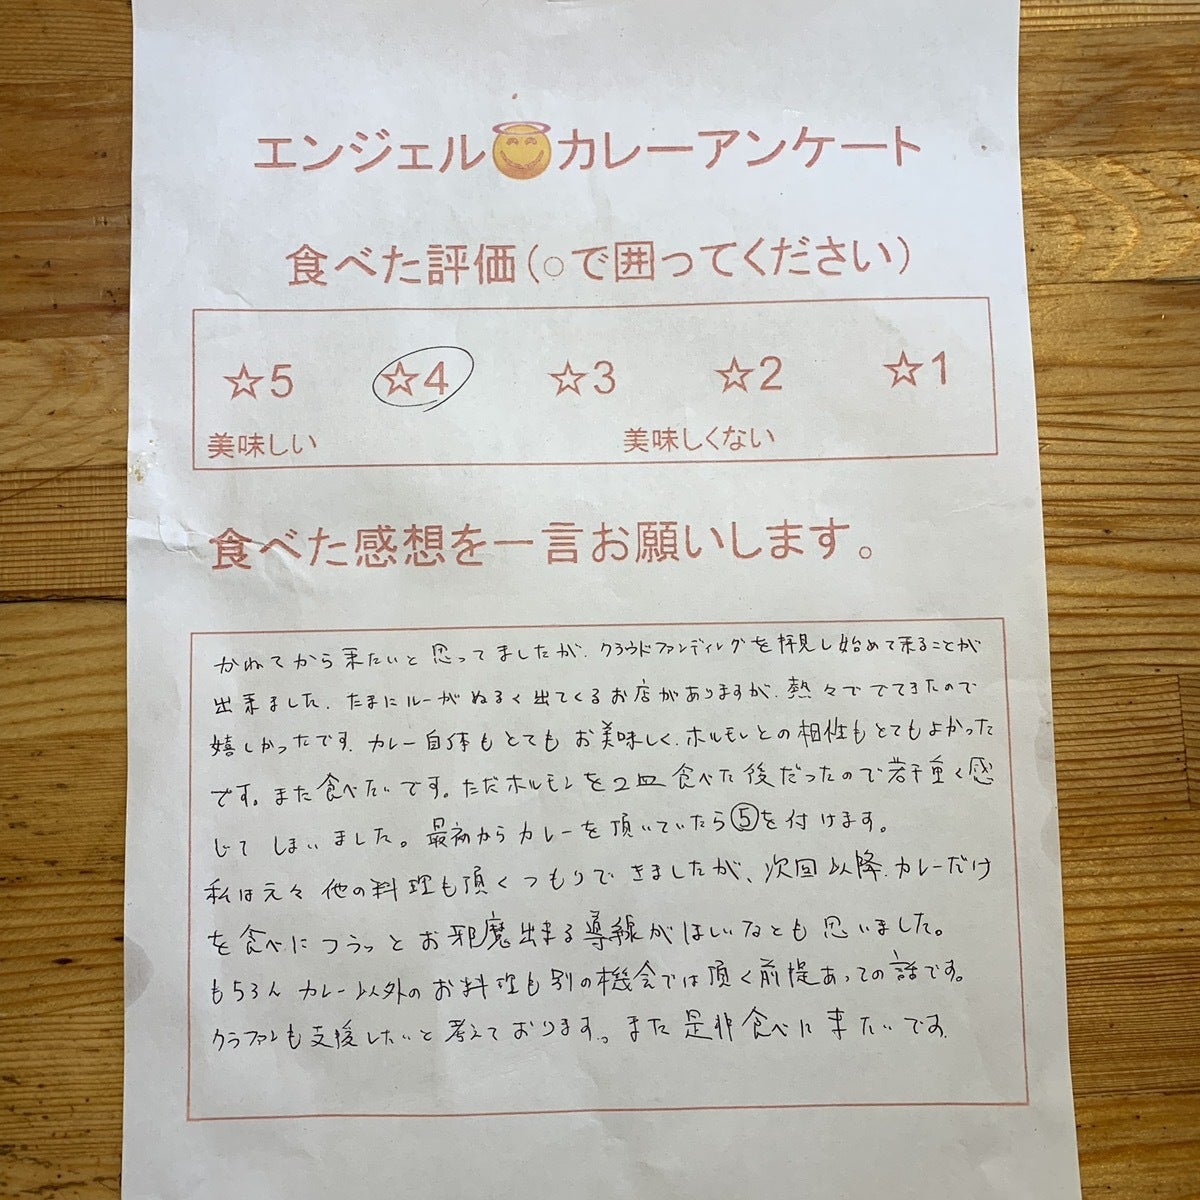 エンジェル😇カレーアンケート
食べた評価(○で囲ってください)
☆5 ☆4 ☆3 ☆2 ☆1
美味しい 美味しくない
食べた感想を一言お願いします。
かねてから来たいと思ってましたが、クラウドファンディングを拝見し始めて来ることが
出来ました。たまにルーがぬるく出てくるお店がありますが、熱々ででてきたので
嬉しかったです。カレー自体もとてもお美味しく、ホルモンとの相性もとてもよかった
です。また食べたいです。ただホルモンを2皿食べた後だったので若干重く感
じてしまいました。最初からカレーを頂いていたら⑤を付けます。
私は元々他の料理も頂くつもりできましたが、次回以降、カレーだけ
を食べにフラっとお邪魔出来る導線がほしいなとも思いました。
もちろんカレー以外のお料理も別の機会では頂く前提あっての話です。
クラファンも支援したいと考えております。また是非食べに来たいです。